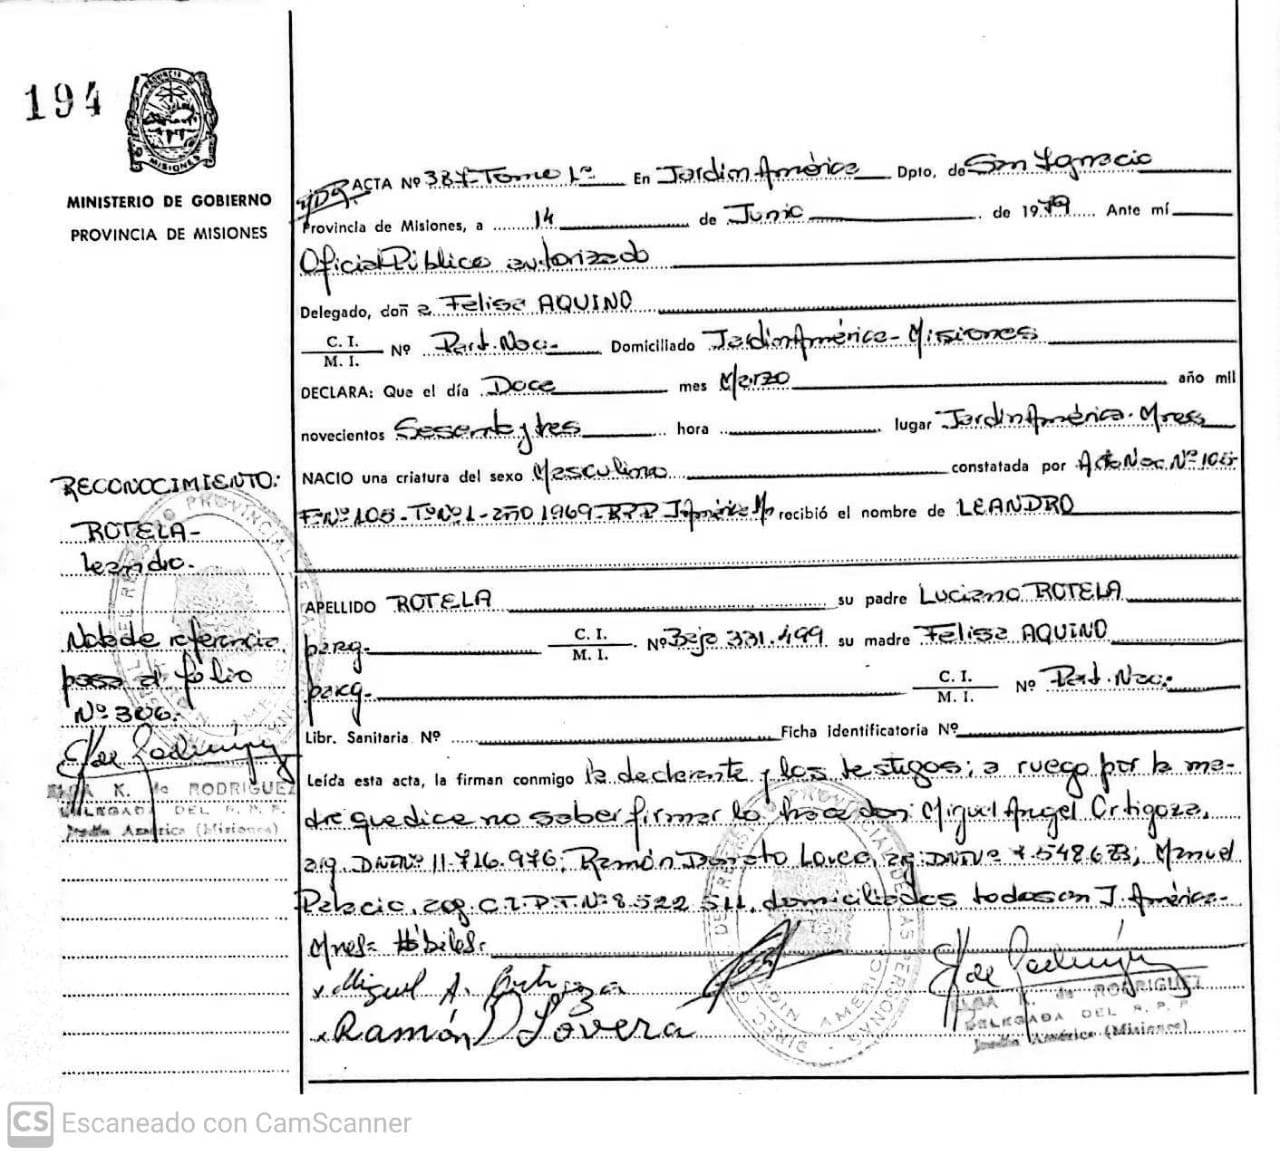 194
MINISTERIO DE GOBIERNO
PROVINCIA DE MISIONES
ACTA Nº 387 Tomo 1º En Jardin América Dpto. de San Ignacio
Provincia de Misiones, a 14 de Junio de 1979 Ante mí
Oficial Público autorizado
Delegado, doñ a Felisa AQUINO
C. I.
M. I. Nº Part. Nac. Domiciliado Jardin América - Misiones
DECLARA: Que el día Doce mes Marzo año mil
novecientos Sesenta y tres hora lugar Jardin América - Mnes
NACIO una criatura del sexo Masculino constatada por Acta Nac. Nº 105
Fº Nº 105 - Tº Nº 1 - año 1969 - R.P.P. J. América M recibió el nombre de LEANDRO
APELLIDO ROTELA su padre Luciano ROTELA
parg. C. I.
M. I. Nº Baja 331.499 su madre Felisa AQUINO
parg. C. I.
M. I. Nº Part. Nac.
Libr. Sanitaria Nº Ficha identificatoria Nº
Leída esta acta, la firman conmigo la declarante y los testigos; a ruego por la ma-
dre que dice no saber firmar lo hace don Miguel Angel Ortigoza,
arg. DNI Nº 11.716.976; Ramón Donato Lovera, arg. DNI Nº 7.548.673; Manuel
Palacio, arg. C.I.P.T. Nº 8.522 511, domiciliados todos en J. América-
Mnes= Hábiles.
Miguel A. Ortigoza
Ramón D Lovera
RECONOCIMIENTO:
ROTELA-
Leandro.
Nota de referencia
pasa al folio
Nº 306.
ELBA K. de RODRIGUEZ
DELEGADA DEL R. P. P.
Jardín América (Misiones)
ELBA K. de RODRIGUEZ
DELEGADA DEL R. P. P
Jardín América (Misiones)
CS Escaneado con CamScanner